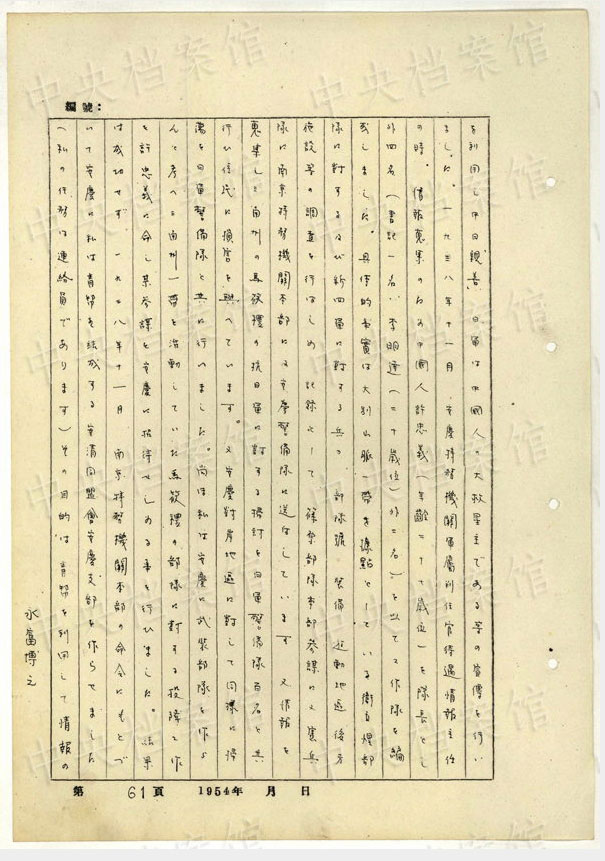 編號：
を利用し中日親善、日軍は中國人の大救星主である等の宣傳を行い
ました。一九三八年十一月、安慶特務機關軍屬判任官待遇情報主任
の時、情報蒐集のため中國人許忠義(年齡二十七歳位)を隊長とし
外四名(書記一名、李明達(二十歳位)外二名)を以て工作隊を編
成しました。具体的事實は大別山脈一帶を據點としている衛立煌部
隊に對する及び新四軍に對する兵力、部隊號、裝備、活動地區後方
施設等の調査を行はしめ記録として 部隊本部参謀に又憲兵
隊に南京特務機關本部に又安慶警備隊に送付しています 又情報を
蒐集し 由州の馬發禮の抗日軍に對する掃討を日軍警備隊百名と共
行ひ住民に損害を與へています。又安慶對岸地區に對して同様に掃
蕩を日軍警備隊と共に行いました。尚ほ私は安慶に武裝部隊を作ら
んと考へて由州一帶を活動していた馬發禮の部隊に對する投降工作
を許忠義に命じ某参謀を安慶に招待せしめる事を行ひました。結果
は成功せず。一九三八年十一月 南京特務機關本部の命令にもとづ
いて安慶に私は青幇を結成する安清同盟會安慶支部を作らせました
(私の任務は連絡員であります)その目的は青幇を利用して情報の
永富博之
第 61頁 1954年 月 日
中央档案馆